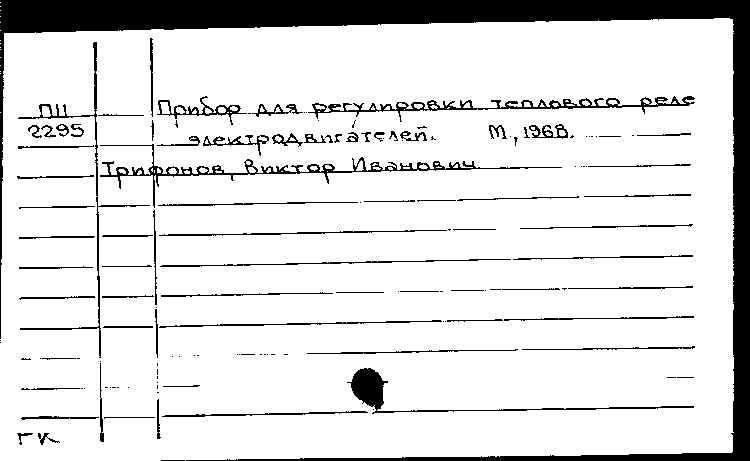 П11 Прибор для регулировки теплового реле
2295 электродвигателей. М., 1968.
Трифонов, Виктор Иванович
ГК